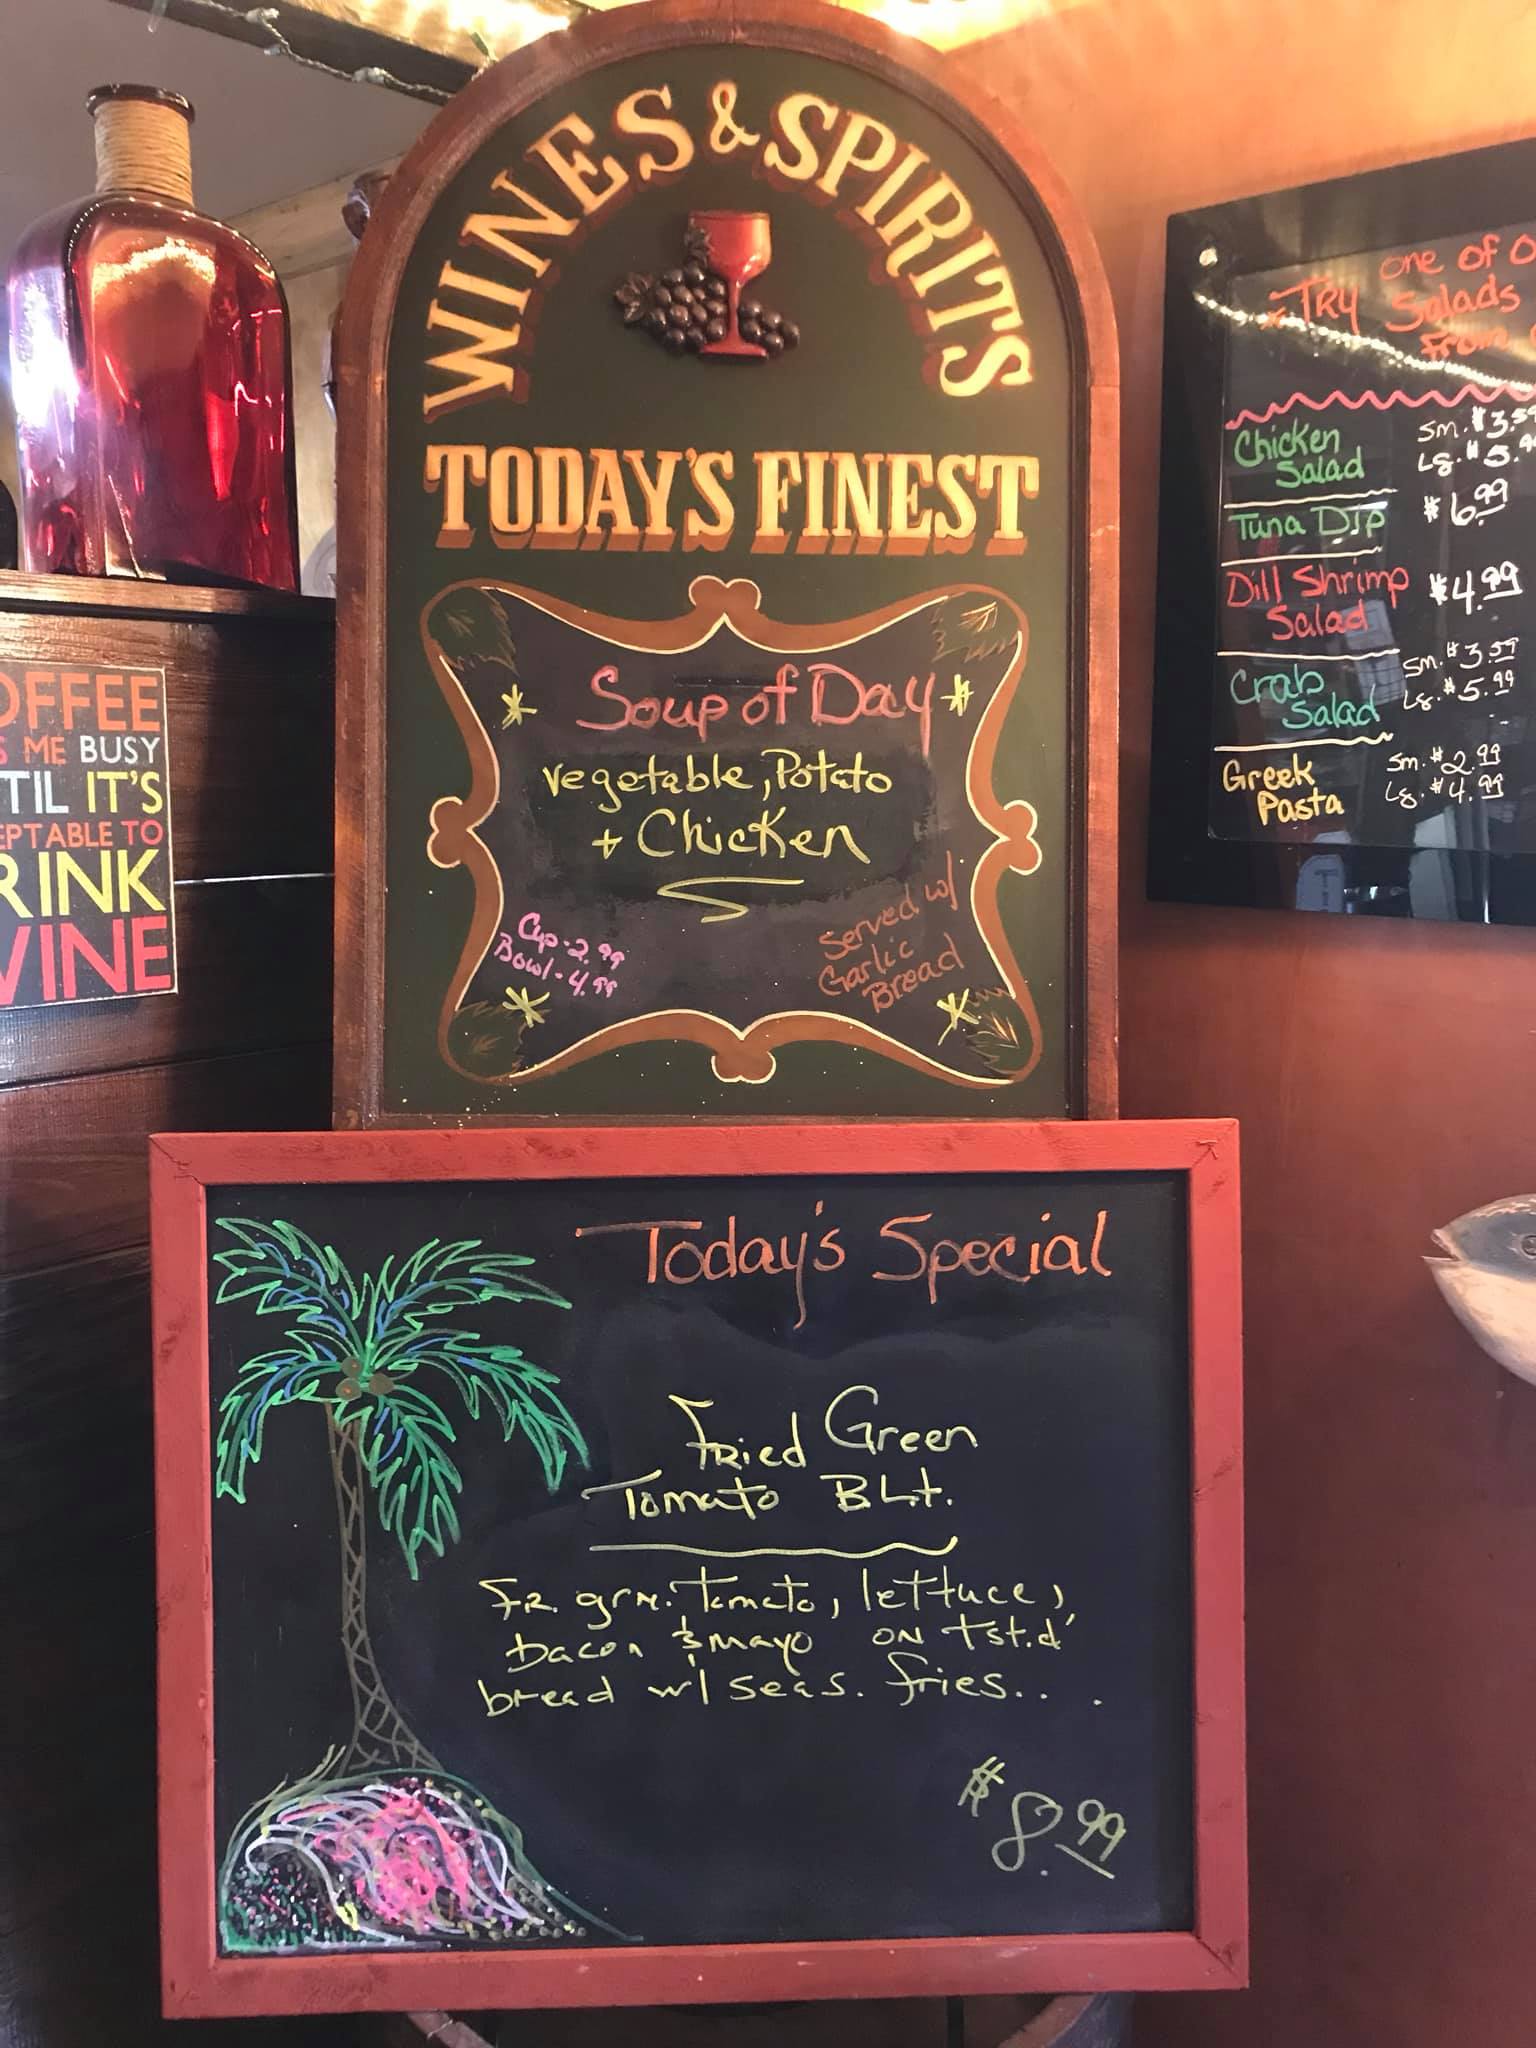 WINES & SPIRITS
TODAY'S FINEST
Soup of Day
vegetable, Potato
+ Chicken
Cup - 2.99
Bowl - 4.99
Served w/
Garlic
Bread
Today's Special
Fried Green
Tomato BLt.
Fr. grn. Tomato, lettuce,
bacon & mayo on tst.d'
bread w/ seas. fries...
$8.99
OFFEE
ME BUSY
TIL IT'S
EPTABLE TO
RINK
WINE
one of
*TRY Salads
from
Chicken Sm. $3.59
Salad Lg. $5.99
Tuna Dip $6.99
Dill Shrimp $4.99
Salad
Crab Sm. $3.59
Salad Lg. $5.99
Greek Sm. $2.99
Pasta Lg. $4.99